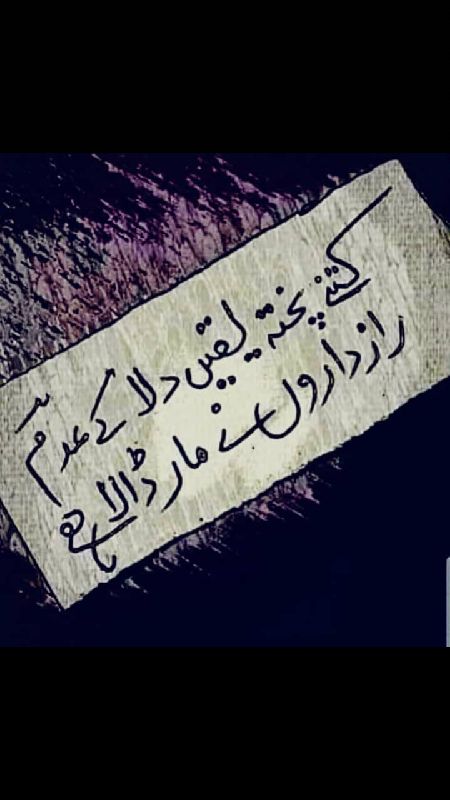 کتنے پختہ یقیں دلا کے عدمؔ
رازداروں نے مار ڈالا ہے